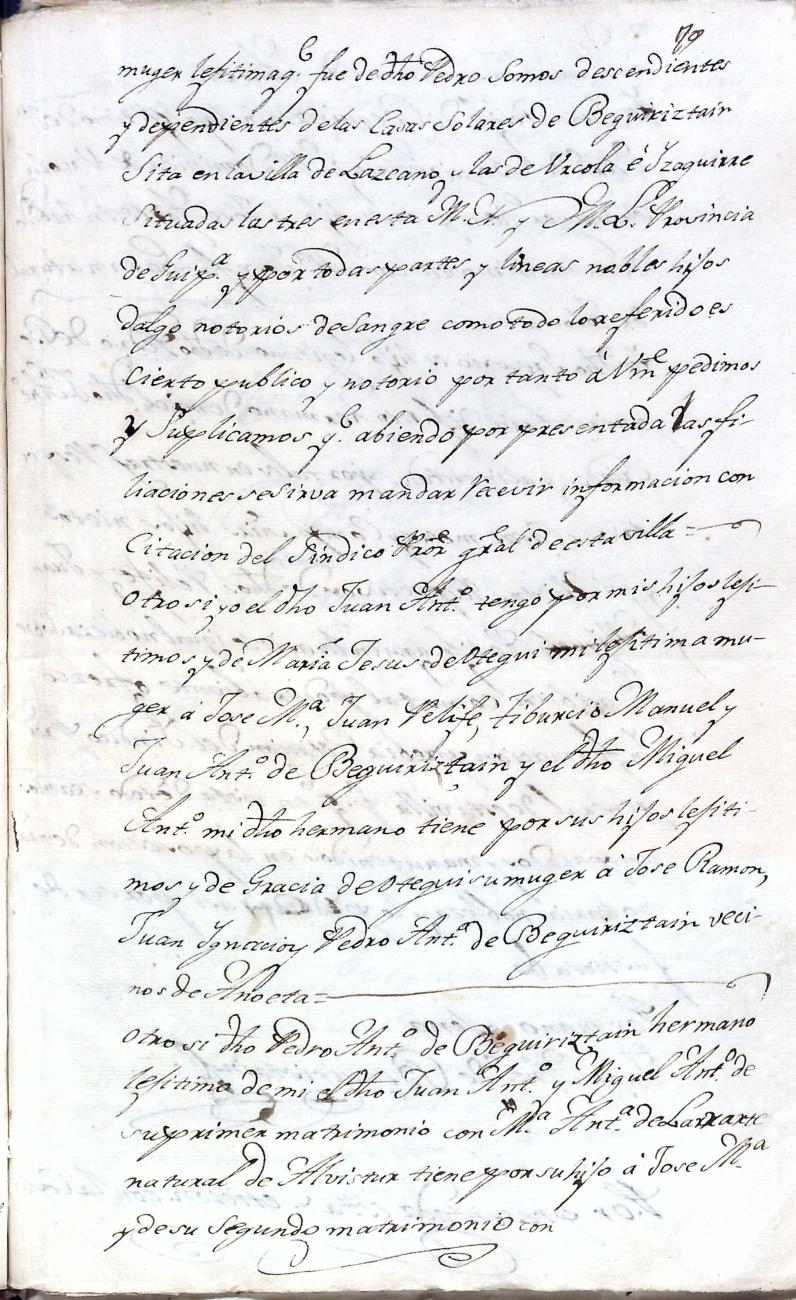 muger lefitima q.e fue de dho Pedro Somos descendientes
y dependientes de las Casas Solares de Beguiriztain
Sita en la villa de Lazcano, y las de Vrcola é Yzaguirre
Situadas las tres en esta M. N. y M. L. Provincia
de Guip.a y por todas partes y lineas nobles hijos
dalgo notorios de Sangre como todo lo referido es
cierto publico y notorio por tanto á Vm.e pedimos
y Suplicamos q.e abiendo por presentada las fi-
liaciones se sirva mandar Recevir informacion con
Citacion del Sindico Pror gral de esta villa =
Otro si yo el dho Juan Ant.o tengo por mis hijos lefi-
timos y de Maria Jesus de Otegui mi lefitima mu-
ger á Jose M.a, Juan Pelife, Tiburcio Manuel y
Juan Ant.o de Beguiriztain y el dho Miguel
Ant.o mi dho hermano tiene por sus hijos lefiti-
mos y de Gracia de Otegui su muger á Jose Ramon,
Juan Ygnacio y Pedro Ant.o de Beguiriztain veci-
nos de Anoeta =
Otro si dho Pedro Ant.o de Beguiriztain hermano
lefitimo de mi el dho Juan Ant.o y Miguel Ant.o de
su primer matrimonio con M.a Ant.a de Larrarte
natural de Alvistur tiene por su hijo á Jose M.a
y de su Segundo matrimonio con